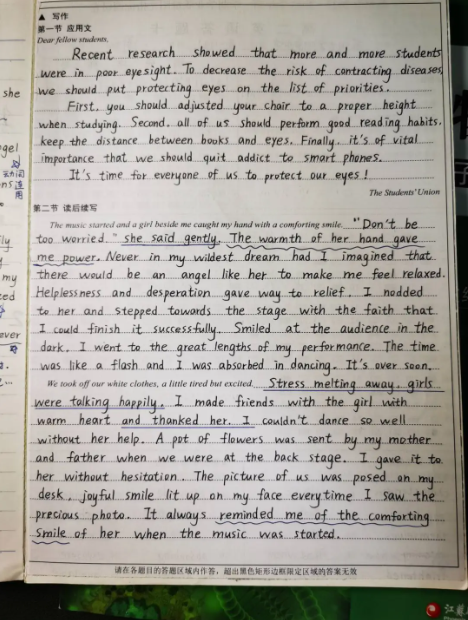 ▲ 写作
第一节 应用文
Dear fellow students,
Recent research showed that more and more students
were in poor eyesight. To decrease the risk of contracting diseases,
we should put protecting eyes on the list of priorities.
First, you should adjusted your chair to a proper height
when studying. Second, all of us should perform good reading habits,
keep the distance between books and eyes. Finally, it's of vital
importance that we should quit addict to smart phones.
It's time for everyone of us to protect our eyes!
The Students' Union
第二节 读后续写
The music started and a girl beside me caught my hand with a comforting smile. "Don't be
too worried." she said gently. The warmth of her hand gave
me power. Never in my wildest dream had I imagined that
there would be an angel like her to make me feel relaxed.
Helplessness and desperation gave way to relief. I nodded
to her and stepped towards the stage with the faith that
I could finish it successfully. Smiled at the audience in the
dark, I went to the great lengths of my performance. The time
was like a flash and I was absorbed in dancing. It's over soon.
We took off our white clothes, a little tired but excited. Stress melting away, girls
were talking happily. I made friends with the girl with
warm heart and thanked her. I couldn't dance so well
without her help. A pot of flowers was sent by my mother
and father when we were at the back stage. I gave it to
her without hesitation. The picture of us was posed on my
desk, joyful smile lit up on my face everytime I saw the
precious photo. It always reminded me of the comforting
smile of her when the music was started.
请在各题目的答题区域内作答，超出黑色矩形边框限定区域的答案无效
she
gel
动词
ly
my
ted
ever